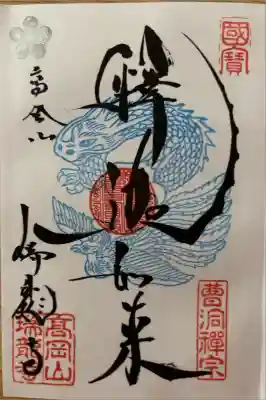 國寶
釋迦如来
高岡山
瑞龍寺
曹洞禪宗
高岡山